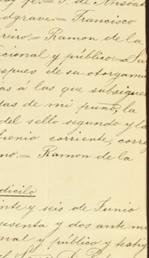 dgrave = Francisco
rrero = Ramon de la
cional y público = Sig
espues de su otorgam
as a las que subsigue
das de mi puño, la
del sello segundo y lo
bienio corriente, corro
no. = Ramon de la
dicilo
inte y seis de Junio
resenta y dos ante m
onal y público y testig